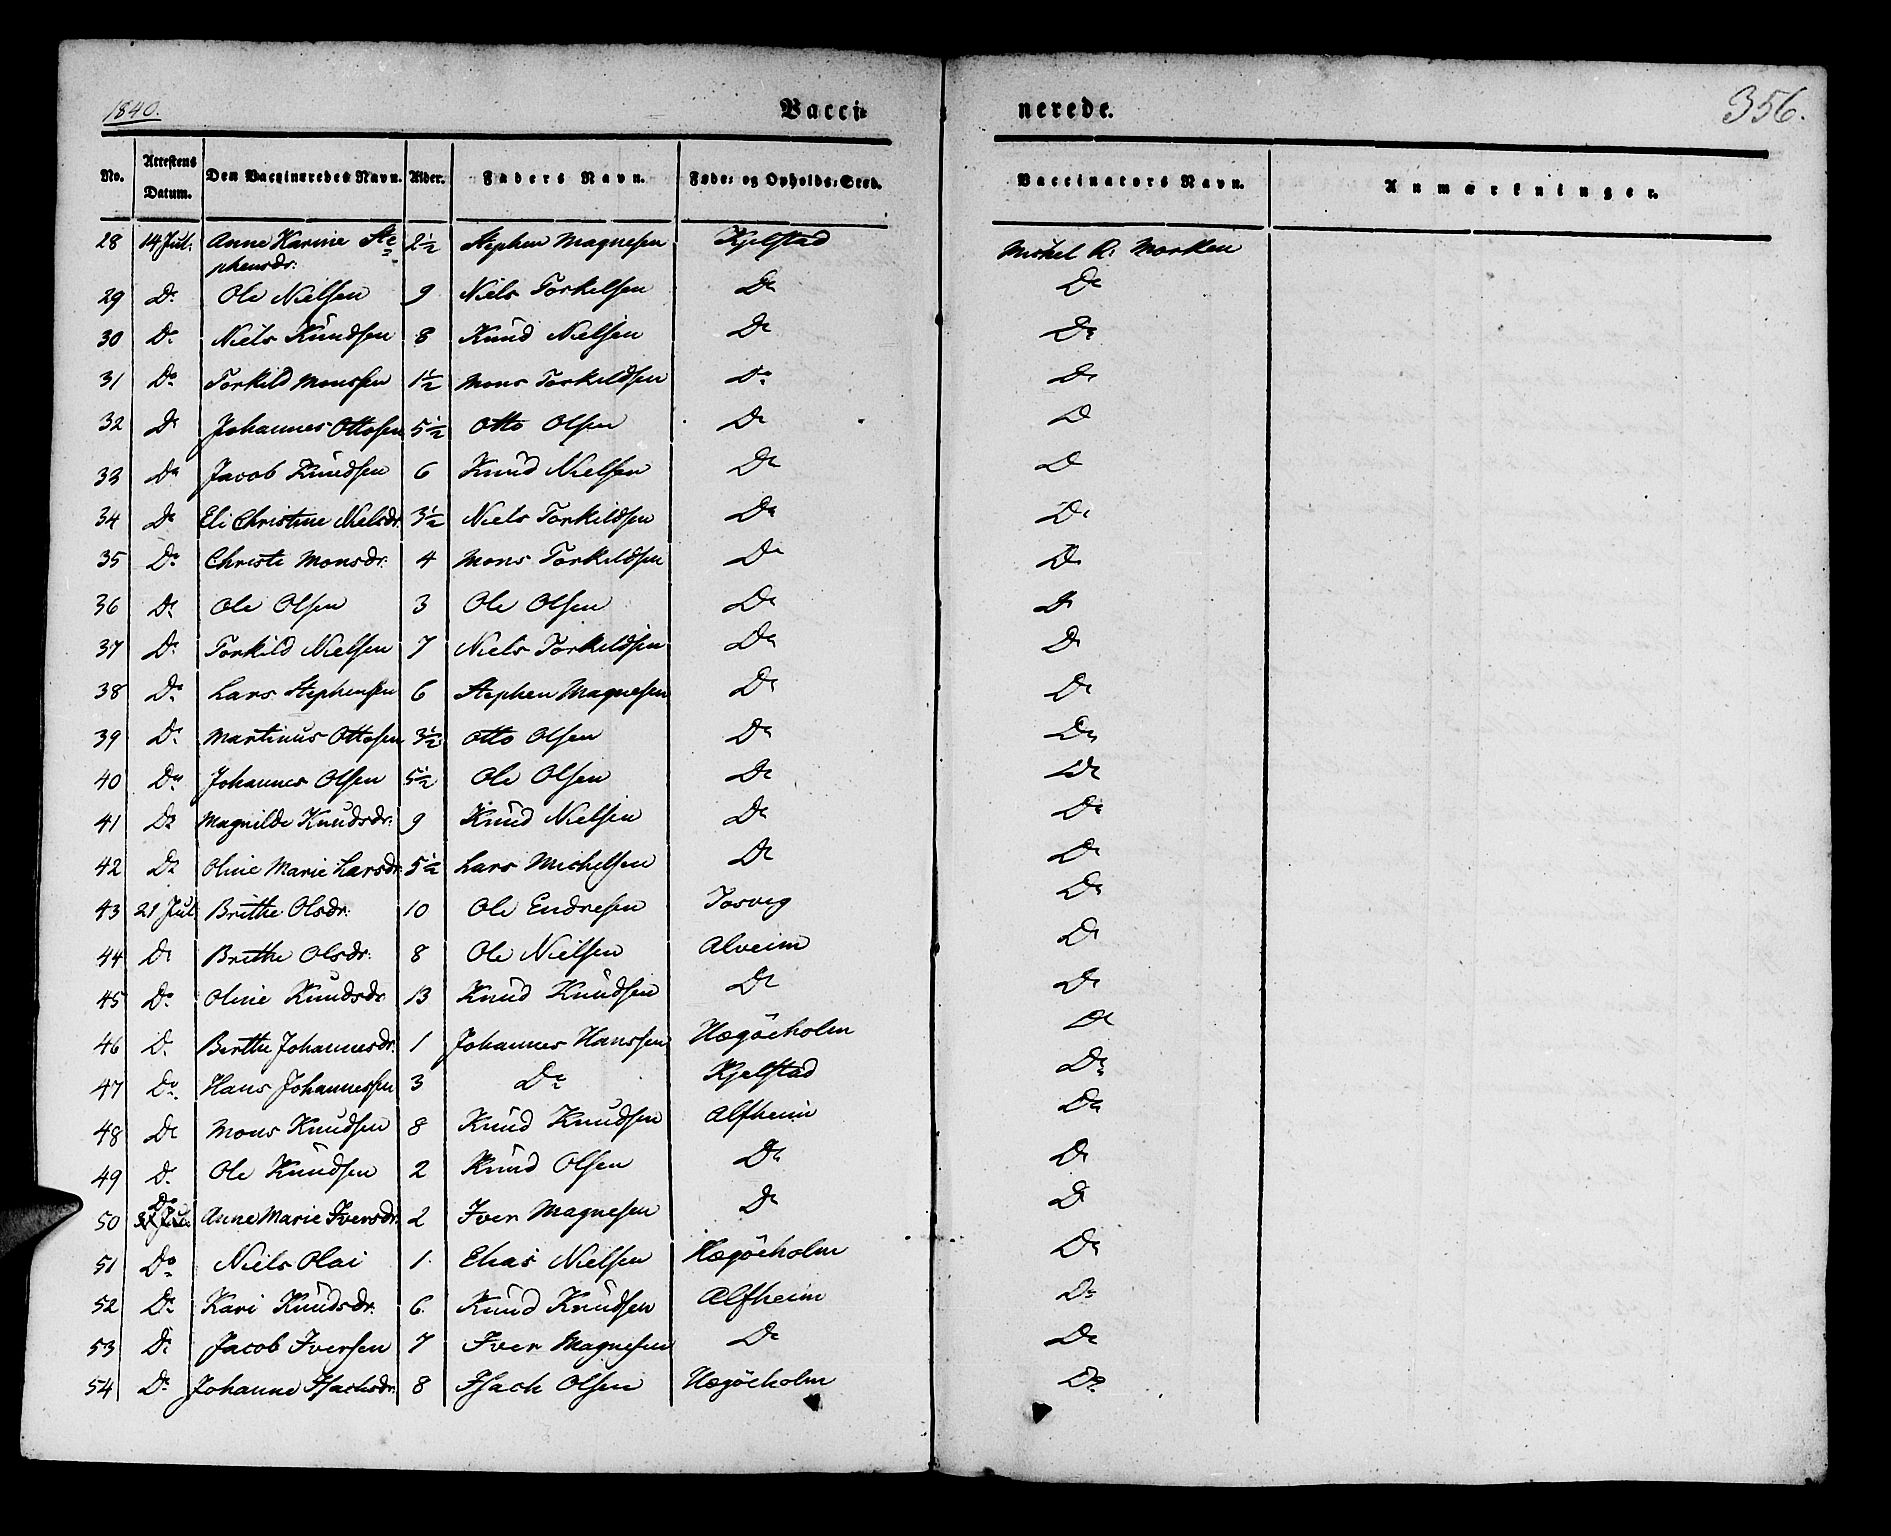 1840. Vacci- nerede. 356.
No. Attestens Datum. Den Vaccineredes Navn. Alder. Faders Navn. Føde- og Opholds-Sted. Vaccinators Navn. Anmærkninger.
28 14 Jul. Anne Karine Ste= 2½ Stephen Magnesen Kjelstad Michel R. Morken
phensdr.
29 Do Ole Nielsen 9 Niels Torkelsen Do Do
30 Do Niels Knudsen 8 Knud Nielsen Do Do
31 Do Torkild Monssen 1½ Mons Torkildsen Do Do
32 Do Johannes Ottosen 5½ Otto Olsen Do Do
33 Do Jacob Knudsen 6 Knud Nielsen Do Do
34 Do Eli Christine Nielsdr. 3½ Niels Torkildsen Do Do
35 Do Christi Monsdr. 4 Mons Torkildsen Do Do
36 Do Ole Olsen 3 Ole Olsen Do Do
37 Do Torkild Nielsen 7 Niels Torkildsen Do Do
38 Do Lars Stephensen 6 Stephen Magnesen Do Do
39 Do Martinus Ottosen 3½ Otto Olsen Do Do
40 Do Johannes Olsen 5½ Ole Olsen Do Do
41 Do Magnilde Knudsdr. 9 Knud Nielsen Do Do
42 Do Oline Marie Larsdr. 5½ Lars Michelsen Do Do
43 21 Jul. Brithe Olsdr. 10 Ole Endresen Tosvig Do
44 Do Brithe Olsdr. 8 Ole Nielsen Alveim Do
45 Do Oline Knudsdr. 13 Knud Knudsen Do Do
46 Do Berthe Johannesdr. 1 Johannes Hanssen Hægöeholm Do
47 Do Hans Johannessen 3 Do Kjelstad Do
48 Do Mons Knudsen 8 Knud Knudsen Alfheim Do
49 Do Ole Knudsen 2 Knud Olsen Do Do
50 Do Anne Marie Iversdr. 2 Iver Magnesen Do Do
51 Do Niels Olai 1. Elias Nielsen Hægöeholm Do
52 Do Kari Knudsdr. 6. Knud Knudsen Alfheim Do
53 Do Jacob Iversen 7 Iver Magnesen Do Do
54 Do Johanne Isachsdr. 8 Isach Olsen Hægöeholm Do